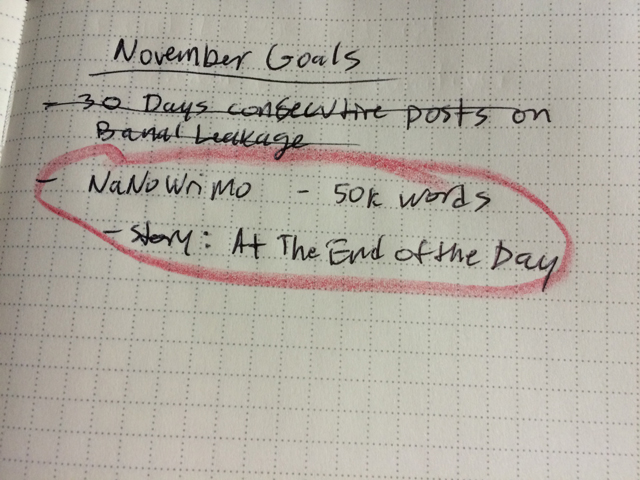 November Goals
- 30 Days consecutive posts on
Banal Leakage
- NaNoWriMo - 50k words
- Story: At The End of the Day